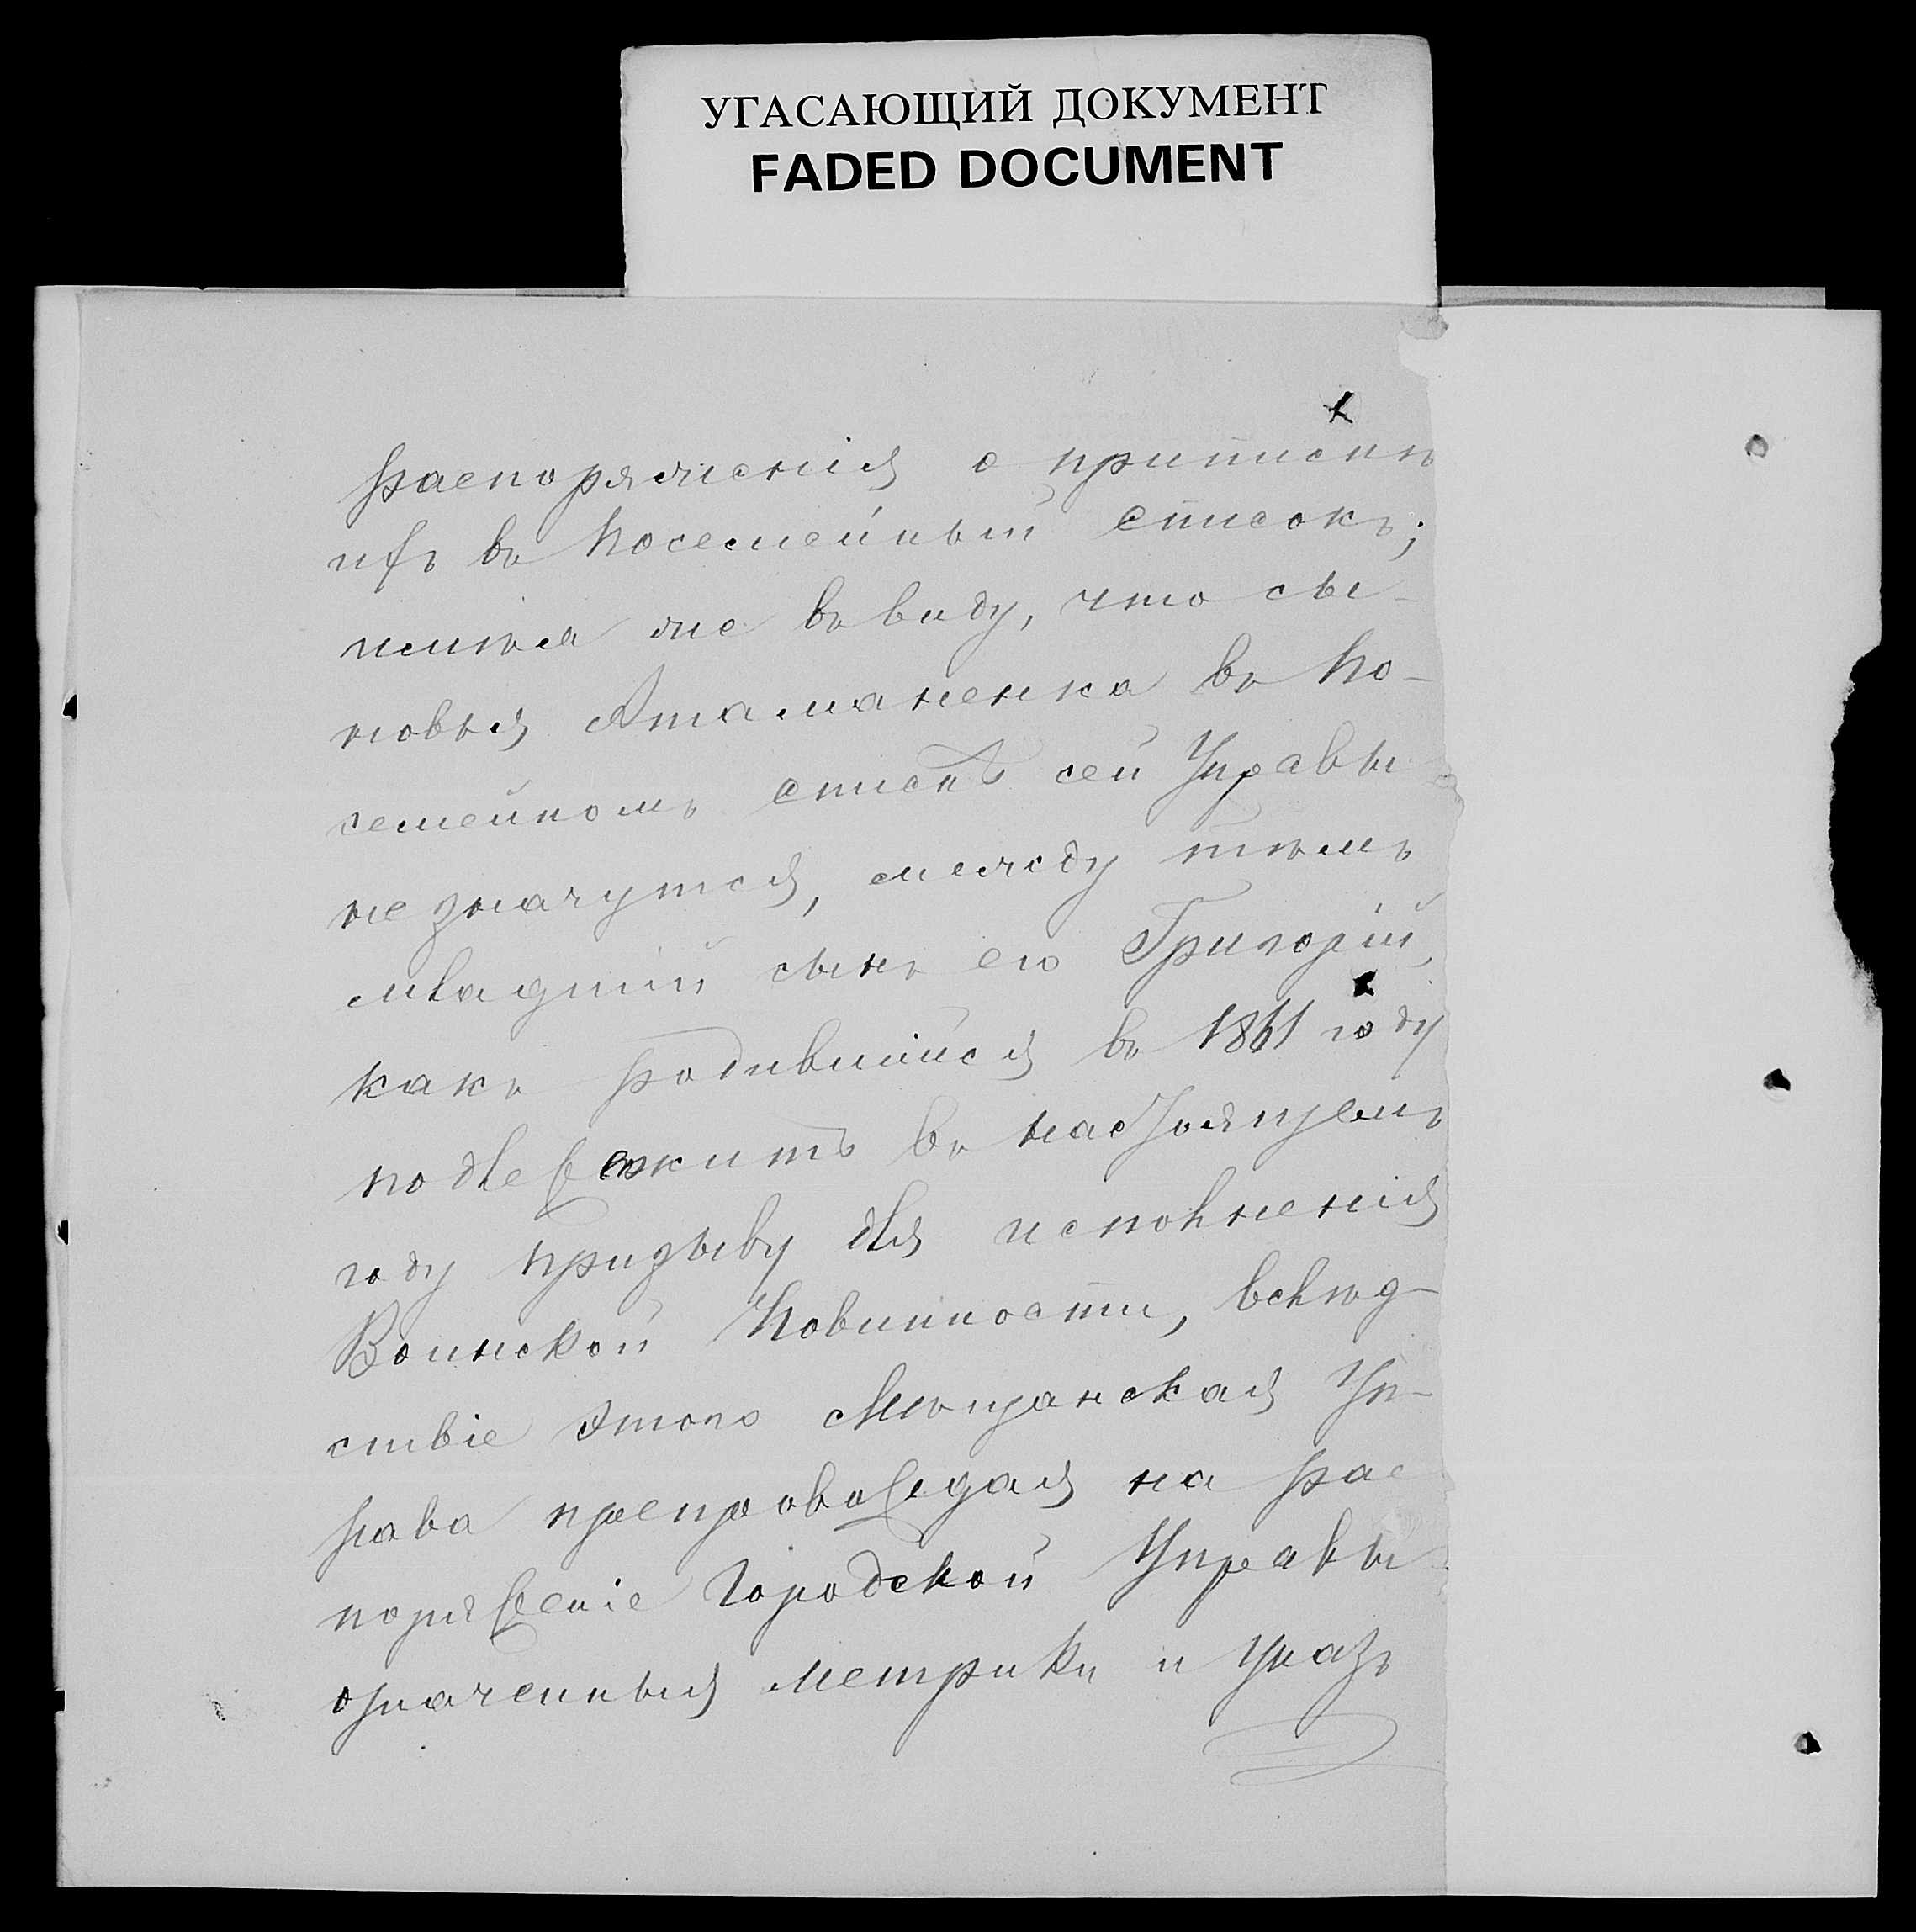 УГАСАЮЩИЙ ДОКУМЕНТ
FADED DOCUMENT
распоряженія о припискѣ
ихъ въ посемейный списокъ;
имѣя же въ виду, что сы-
новья Атаманенка въ по-
семейномъ спискѣ сей Управы
не значутся, между тѣмъ
младшій сынъ его Григорій,
какъ родившійся въ 1861 году
подлежитъ въ настоящемъ
году призыву для исполненія
Воинской Повинности, вслѣд-
ствіе этого Мѣщанская Уп-
рава препровождая на рас
поряженіе Городской Управы
означенныя метрики и указъ